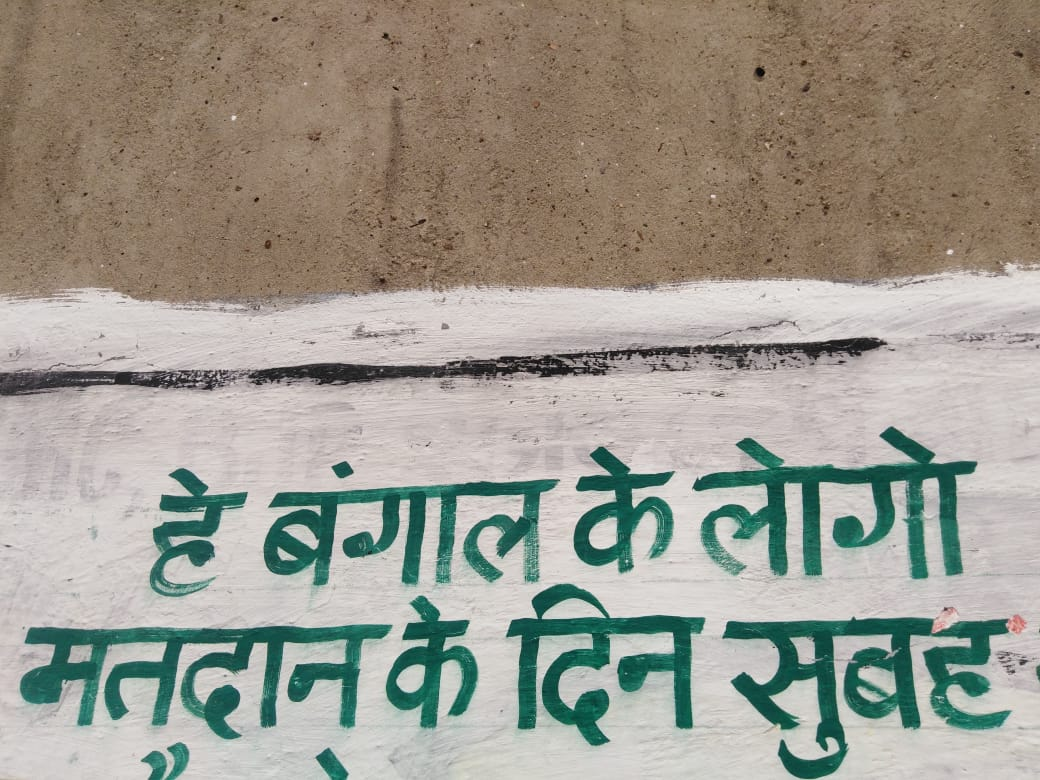 हे बंगाल के लोगो
मतदान के दिन सुबह